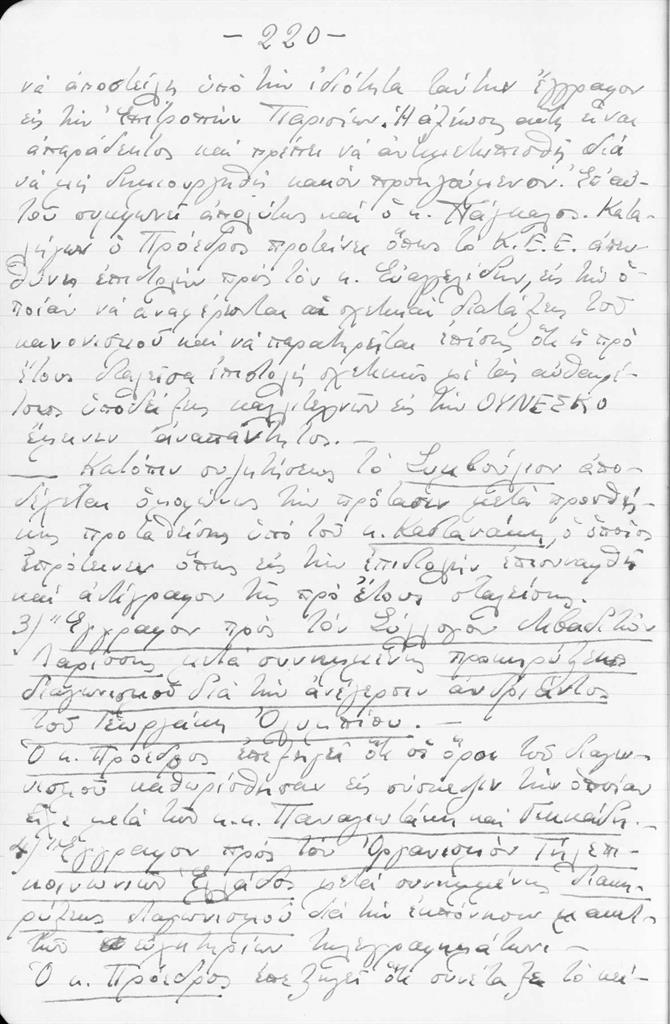 - 220 -
νά ἀποστείλῃ ὑπό τήν ἰδιότητα ταύτην ἔγγραφον
εἰς τήν Ἐπιτροπήν Παρισίων. Ἡ ἀξίωσις αὐτή εἶναι
ἀπαράδεκτος καί πρέπει νά ἀντιμετωπισθῇ διά
νά μή δημιουργηθῇ κακόν προηγούμενον. Ἐπ' αὐ-
τοῦ συμφωνεῖ ἀπολύτως καί ὁ κ. Κατα-
λήγων ὁ Πρόεδρος προτείνει ὅπως τό Κ.Ε.Ε. ἀπευ-
θύνῃ ἐπιστολήν πρός τόν κ. Εὐαγγελίδην, εἰς τήν ὁ-
ποίαν νά ἀναφέρωνται αἱ σχετικαί διατάξεις τοῦ
κανονισμοῦ καί νά παρατηρεῖται ἐπίσης ὅτι ἡ πρό
ἔτους σταλεῖσα ἐπιστολή σχετικῶς μέ τάς αὐθαιρέ-
τους ὑποδείξεις καλλιτεχνῶν εἰς τήν ΟΥΝΕΣΚΟ
ἔμεινεν ἀναπάντητος. -
— Κατόπιν συζητήσεως τό Συμβούλιον ἀπο-
δέχεται ὁμοφώνως τήν πρότασιν μετά προσθή-
κης προταθείσης ὑπό τοῦ κ. Καστανάκη, ὁ ὁποῖος
ἐπρότεινεν ὅπως εἰς τήν ἐπιστολήν ἐπισυναφθῇ
καί ἀντίγραφον τῆς πρό ἔτους σταλείσης.
3) "Ἔγγραφον πρός τόν Σύλλογον Λιβαδιτῶν
Λαρίσσης μετά συνημμένης προκηρύξεως
διαγωνισμοῦ διά τήν ἀνέγερσιν ἀνδριάντος
τοῦ Γεωργάκη Ὀλυμπίου. -
Ὁ κ. Πρόεδρος ἐπεξηγεῖ ὅτι οἱ ὅροι τοῦ διαγω-
νισμοῦ καθωρίσθησαν εἰς σύσκεψιν τήν ὁποίαν
εἶχε μετά τῶν κ.κ. Παναγιωτάκη καί -
4) "Ἔγγραφον πρός τόν Ὀργανισμόν Τηλεπι-
κοινωνιῶν Ἑλλάδος μετά συνημμένης διακη-
ρύξεως διαγωνισμοῦ διά τήν ἐκπόνησιν μακετ-
τῶν εὐχετηρίων τηλεγραφημάτων. -
Ὁ κ. Πρόεδρος ἐπεξηγεῖ ὅτι συνέταξε τό κεί-